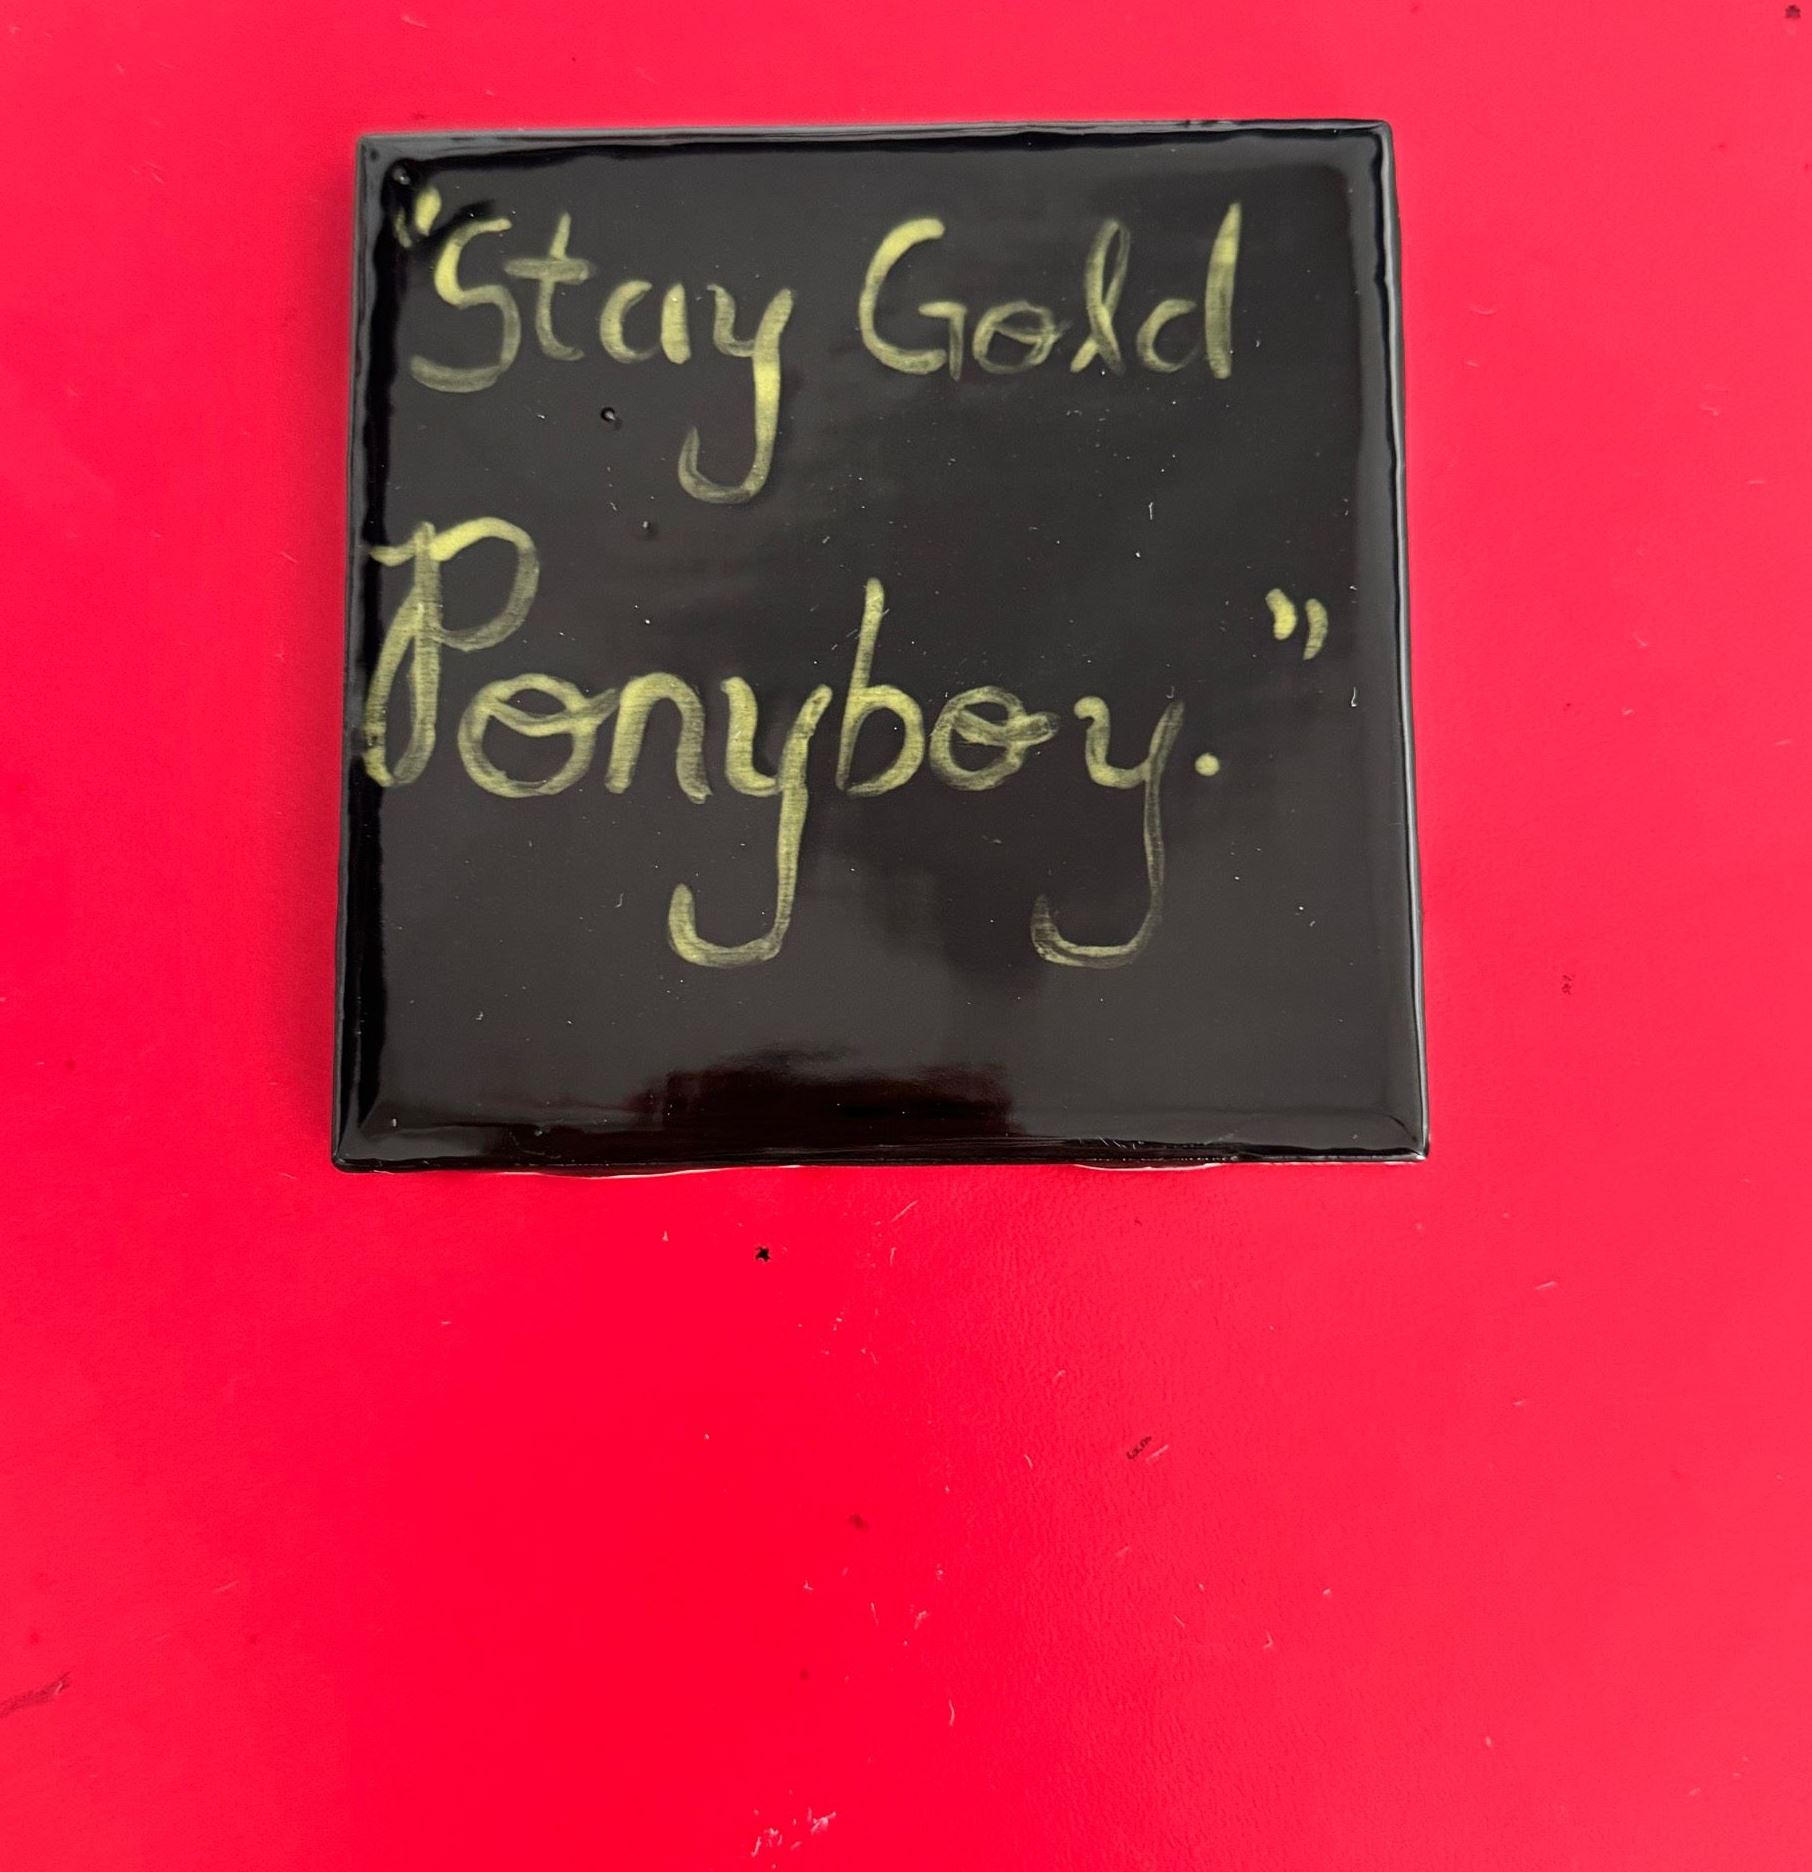 "Stay Gold
Ponyboy."